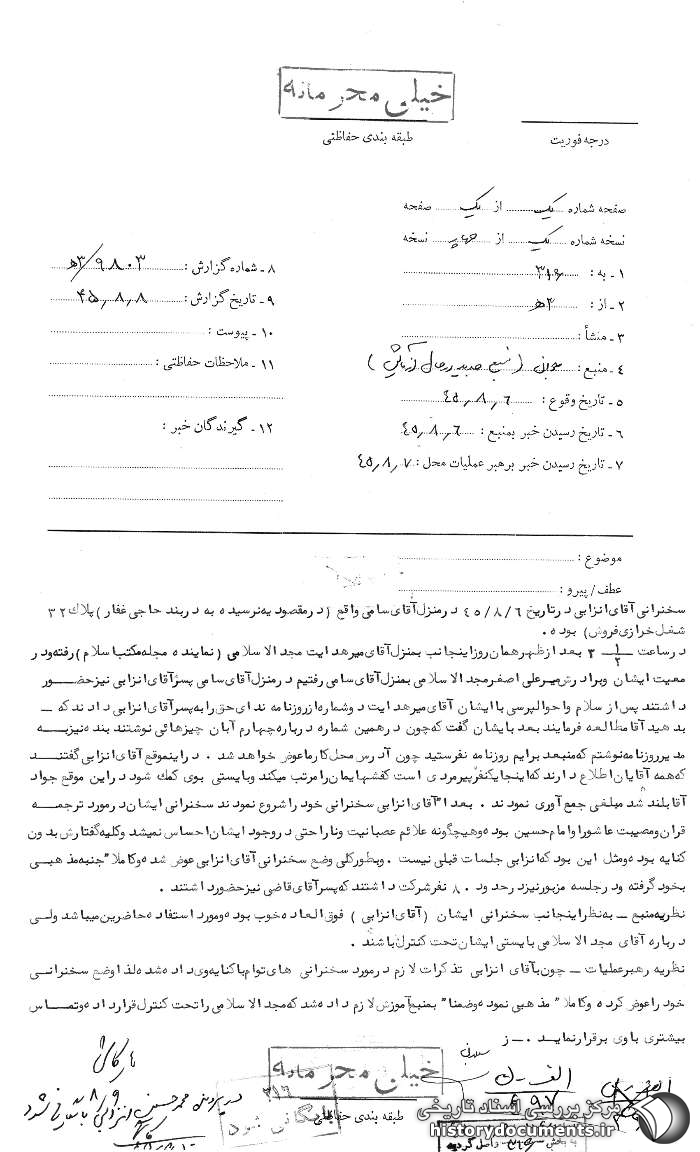 خیلی محرمانه
طبقه بندی حفاظتی
درجه فوریت
صفحه شماره یک از یک صفحه
نسخه شماره یک از چهار نسخه
۱ - به : ۳۱۶
۲ - از : ۳ﻫ
۳ - منشأ :
۴ - منبع :
۵ - تاریخ وقوع : ۴۵٫۸٫۶
۶ - تاریخ رسیدن خبر بمنبع : ۴۵٫۸٫۶
۷ - تاریخ رسیدن خبر برهبر عملیات محل : ۴۵٫۸٫۷
۸ - شماره گزارش : ۹۸۰۳/ﻫ۳
۹ - تاریخ گزارش : ۴۵٫۸٫۸
۱۰ - پیوست :
۱۱ - ملاحظات حفاظتی :
۱۲ - گیرندگان خبر :
موضوع :
عطف/ پیرو :
سخنرانی آقای انزابی درتاریخ ۴۵/۸/۶ درمنزل آقای سامی واقع (درمقصودیه نرسیده به دربند حاجی غفار) پلاک ۳۲
شغل خرازی فروش) بوده .
درساعت ۳ ۱/۲ بعد ازظهر همان روز اینجانب بمنزل آقای میرهدایت مجدالاسلامی (نماینده مجله مکتب اسلام) رفته ودر
معیت ایشان وبرادرش میرعلی اصغر مجدالاسلامی بمنزل آقای سامی رفتیم درمنزل آقای سامی پسر آقای انزابی نیز حضور
داشتند پس از سلام واحوالپرسی با ایشان آقای میرهدایت دو شماره از روزنامه ندای حق را به پسر آقای انزابی دادند که -
بدهید آقا مطالعه فرمایند بعد بایشان گفت که چون درهمین شماره درباره چهارم آبان چیزهائی نوشتند بنده نیز بـه
مدیر روزنامه نوشتم که منبعد برایم روزنامه نفرستید چون آدرس محل کارما عوض خواهد شد . دراین موقع آقای انزابی گفتنـد
که همه آقایان اطلاع دارند که اینجا یکنفر پیرمردی است کفشهایمان را مرتب میکند وبایستی بوی کمک شود دراین موقع جواد
آقا بلند شد مبلغی جمع آوری نمودند . بعداً آقای انزابی سخنرانی خود را شروع نمودند سخنرانی ایشان درمورد ترجمـه
قران ومصیبت عاشورا وامام حسین بوده وهیچگونه علائم عصبانیت وناراحتی دروجود ایشان احساس نمیشد وکلیه گفتارش بدون
کنایه بود ومثل این بود که انزابی جلسات قبلی نیست . وبطورکلی وضع سخنرانی آقای انزابی عوض شده وکاملاً جنبه مذهبـی
بخود گرفته ودرجلسه مزبور نیز درحدود ۸۰ نفر شرکت داشتند که پسر آقای قاضی نیز حضور داشتند .
نظریه منبع - به نظر اینجانب سخنرانی ایشان (آقای انزابی) فوق العاده خوب بوده ومورد استفاده حاضرین میباشد ولـی
درباره آقای مجدالاسلامی بایستی ایشان تحت کنترل باشند .
نظریه رهبرعملیات - چون بآقای انزابی تذکرات لازم درمورد سخنرانی های توام باکنایه وی داده شده لذا وضع سخنرانـی
خود را عوض کرده وکاملاً مذهبی نموده وضمناً بمنبع آموزش لازم داده شد که مجدالاسلامی را تحت کنترل قرارداده وتماس
بیشتری باوی برقرار نماید . - ز
خیلی محرمانه
طبقه بندی حفاظتی
۳۱۶
بایگانی شود
در پرونده محمد حسین انزابی بایگانی شود
مرکز بررسی اسناد تاریخی
historydocuments.ir